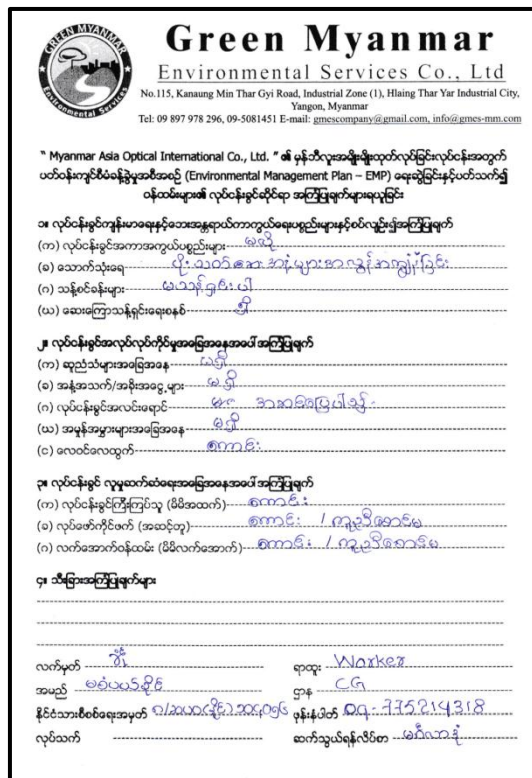 GREEN MYANMAR
Environmental Services
Green Myanmar
Environmental Services Co., Ltd
No.115, Kanaung Min Thar Gyi Road, Industrial Zone (1), Hlaing Thar Yar Industrial City,
Yangon, Myanmar
Tel: 09 897 978 296, 09-5081451 E-mail: gmescompany@gmail.com, info@gmes-mm.com
" Myanmar Asia Optical International Co., Ltd. " ၏ မှန်ဘီလူးအမျိုးမျိုးထုတ်လုပ်ခြင်းလုပ်ငန်းအတွက်
ပတ်ဝန်းကျင်စီမံခန့်ခွဲမှုအစီအစဉ် (Environmental Management Plan – EMP) ရေးဆွဲခြင်းနှင့်ပတ်သက်၍
ဝန်ထမ်းများ၏ လုပ်ငန်းခွင်ဆိုင်ရာ အကြံပြုချက်များရယူခြင်း
၁။ လုပ်ငန်းခွင်ကျန်းမာရေးနှင့်ဘေးအန္တရာယ်ကာကွယ်ရေးပစ္စည်းများနှင့်စပ်လျဉ်း၍အကြံပြုချက်
(က) လုပ်ငန်းခွင်အကာအကွယ်ပစ္စည်းများ မလို
(ခ) သောက်သုံးရေ ပိုးသတ်ဆေး အနံ့များ
(ဂ) သန့်စင်ခန်းများ မသန့်ရှင်းပါ
(ဃ) ဆေးကြောသန့်ရှင်းရေးစနစ် ရှိ
၂။ လုပ်ငန်းခွင်အလုပ်လုပ်ကိုင်မှုအခြေအနေအပေါ် အကြံပြုချက်
(က) ဆူညံသံများအခြေအနေ မရှိ
(ခ) အနံ့အသက်/အခိုးအငွေ့များ မရှိ
(ဂ) လုပ်ငန်းခွင်အလင်းရောင် အဆင်ပြေပါသည်
(ဃ) အမှုန်အမွှားများအခြေအနေ မရှိ
(င) လေဝင်လေထွက် ကောင်း
၃။ လုပ်ငန်းခွင် လူမှုဆက်ဆံရေးအခြေအနေအပေါ် အကြံပြုချက်
(က) လုပ်ငန်းခွင်ကြီးကြပ်သူ (မိမိအထက်) ကောင်း
(ခ) လုပ်ဖော်ကိုင်ဖက် (အဆင့်တူ) ကောင်း / ကူညီစောင်မ
(ဂ) လက်အောက်ဝန်ထမ်း (မိမိလက်အောက်) ကောင်း / ကူညီစောင်မ
၄။ သီးခြားအကြံပြုချက်များ
လက်မှတ် ရာထူး Worker
အမည် ဌာန CG
နိုင်ငံသားစိစစ်ရေးအမှတ် ဖုန်းနံပါတ် 09-775214318
လုပ်သက် ဆက်သွယ်ရန်လိပ်စာ မင်္ဂလာဒုံ